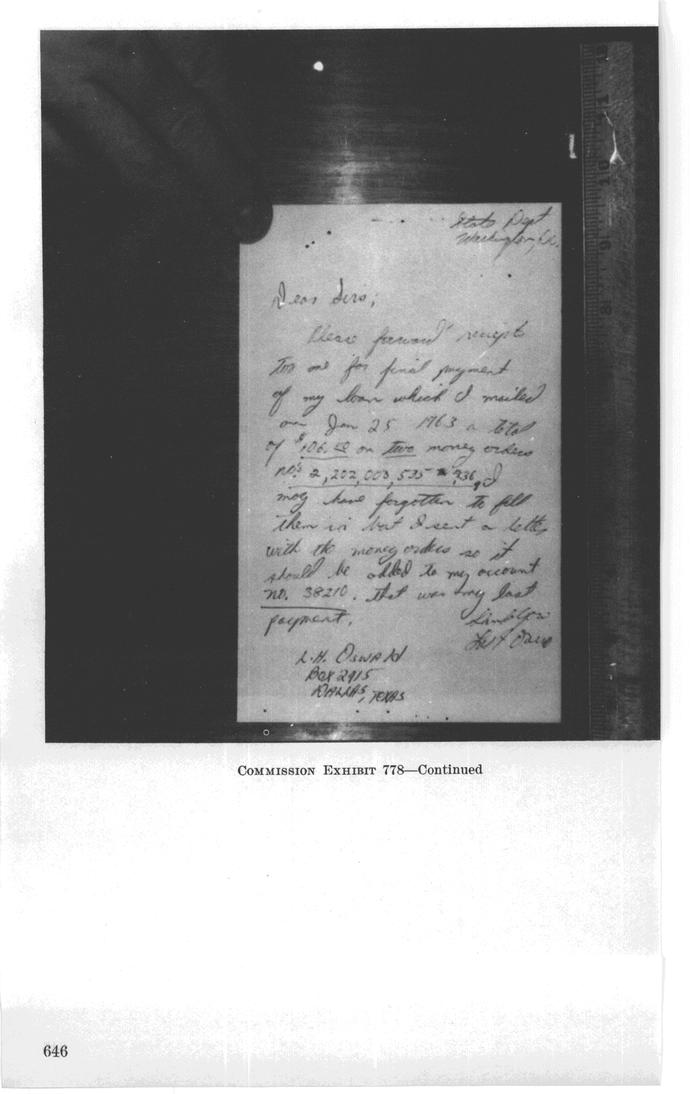 State Dept
Washington, D.C.
Dear Sirs;
Please forward receipt
to me for final payment
of my loan which I mailed
on Jan 25 1963 a total
of $106.00 on two money orders
no.s 2,202,003,535 + 936, I
may have forgotten to fill
them in but I sent a letter
with the money orders so it
should be added to my account
no. 38210. that was my last
payment.
L.H. Oswald
Box 2915
DALLAS, TEXAS
COMMISSION EXHIBIT 778—Continued
646